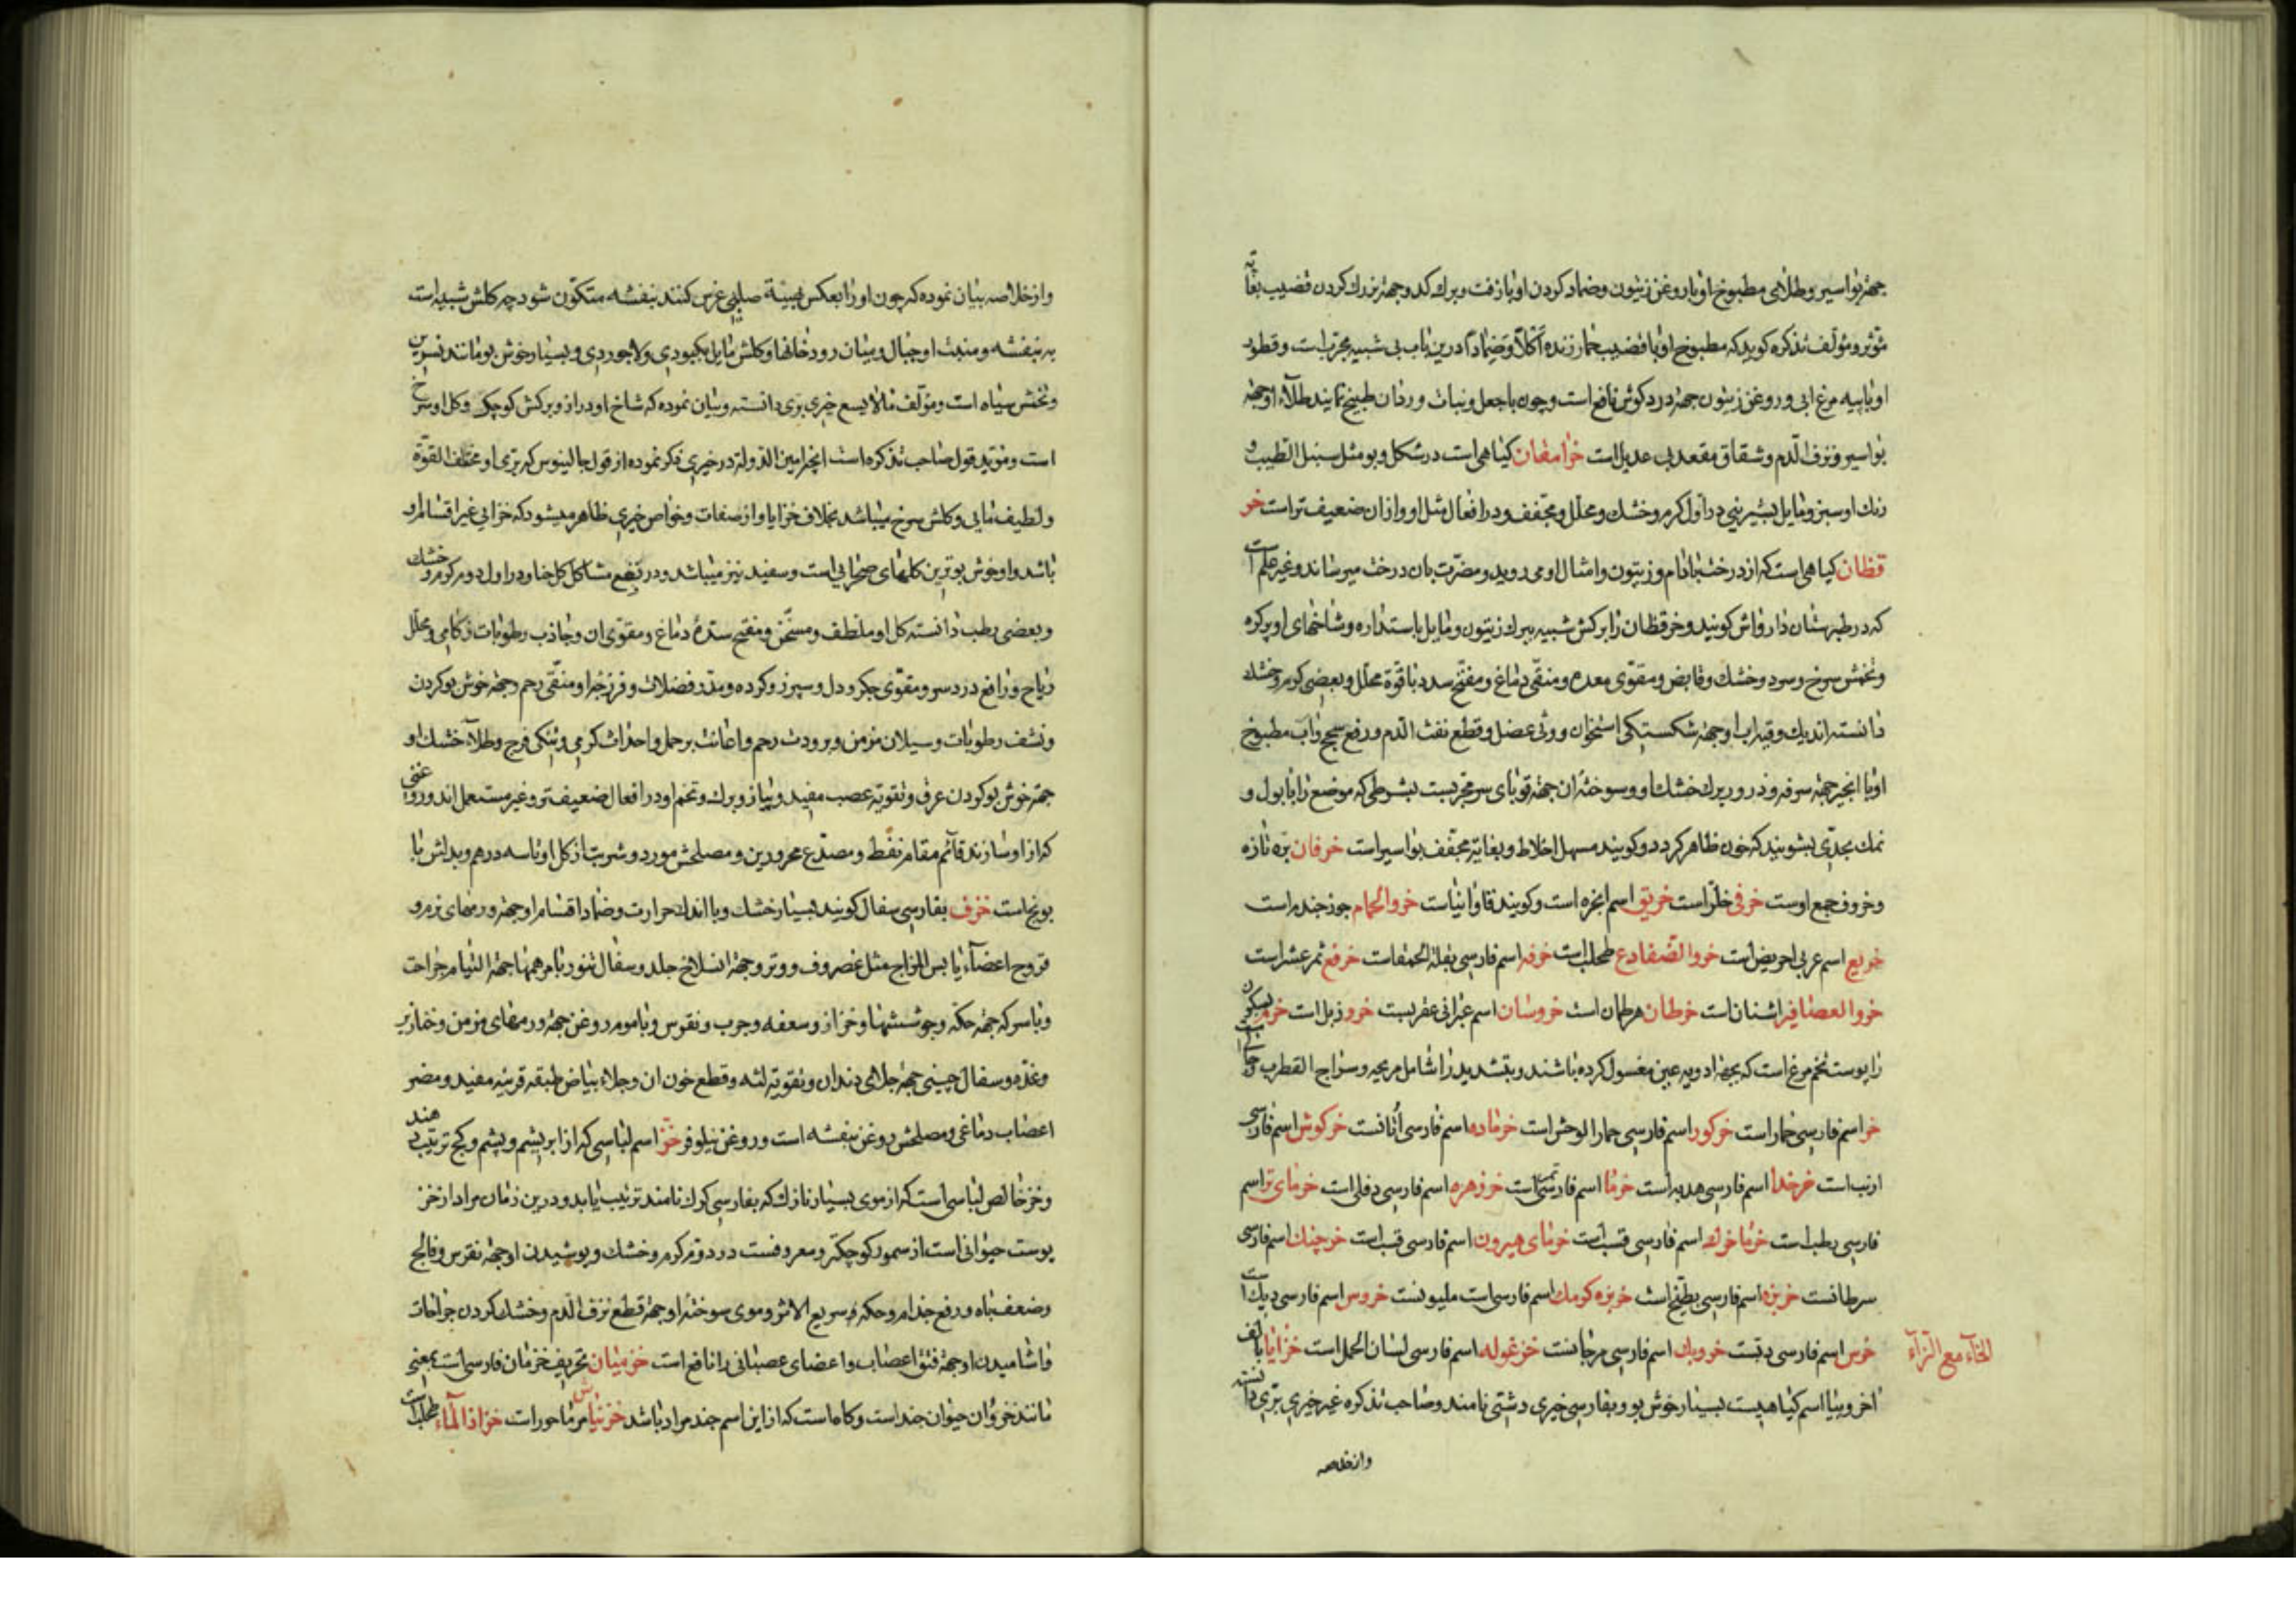 جهتر بواسیر و طلای مطبوخ او با روغن زیتون و ضماد کردن او با زفت و برک کدو جهتر بزرك کردن قضیب بغایه
مؤثر و مؤلف تذکره کوید که مطبوخ او با قضیب حمار زنده اکلاً و ضماداً درین باب بی شبیه مجربست و قطور
او با پیه مرغابی و روغن زیتون جهتر درد کوش نافع است و چون با جعل و نبات وردان طبیخ نمایند طلاء او جهتر
بواسیر و نزف الدم و شقاق مقعد بی عدیل است خرامقان کیاهی است در شکل و بو مثل سنبل الطیب و
رنك او سبز و مایل بشیرینی در اول کرم و خشك و محلل و مجفف و در افعال مثل او و از ان ضعیف تر است خر
قطان کیاهی است که از درخت بادام و زیتون و امثال او می روید و مضرت بان درخت میرساند و غیر علم است
که در طبرستان دارواش کویند و خرقطان را برکش شبیه ببرك زیتون و مایل باستداره و شاخهای او پر کره
و تخمش سرخ و سرد و خشك و قابض و مقوی معده و منقی دماغ و مفتح سدد با قوة محلل و بعضی کرم و خشك
دانسته اند یك وقیه اب او جهتر شکستکی استخوان و وثی عضل و قطع نفث الدم و رفع سحج و اب مطبوخ
او با انجیر جهتر سرفه و ذرور برك خشك او و سوخته ان جهتر قوبای سر مجربست بشرطی که موضع را با بول و
نمك بحدی بشویند که خون ظاهر کردد و کویند مسهل اخلاط و بغایة مجفف بواسیر است خرفان بره تازه
و خروف جمع اوست خرفی خلر است خریق اسم انجره است و کویند قاوانیاست خروالحمام جوز جندم است
خریع اسم عربی احریض است خروالضفادع طحلب است خرفه اسم فارسی بقلة الحمقاست خرفع ثمر عشر است
خروالعصافیر اشنان است خرطان هرطمان است خروسان اسم عبرانی عقربست خرو زبل است خرم بسکون
را پوست تخم مرغ است که بجهتر ادویه عین مغسول کرده باشند و بتشدید را شامل مریحه و سراج القطرب
خر اسم فارسی حمار است خرکور اسم فارسی حمارالوحش است خرماده اسم فارسی اتانست خرکوش اسم فارسی
ارنب است خرخدا اسم فارسی هدبه است خرما اسم فارسی تمر است خرزهره اسم فارسی دفلی است خرمای تر اسم
فارسی رطب است خرما خرك اسم فارسی قسب است خرمای هیرون اسم فارسی قسب است خرچنك اسم فارسی
سرطانست خربزه اسم فارسی بطیخ است خربزه کرمك اسم فارسی است ملیونست خروس اسم فارسی دیك است
خرس اسم فارسی دبست خروبك اسم فارسی مرجانست خرغوله اسم فارسی لسان الحمل است خزایا بالف
الخاء مع الزاء
اخر و بیا اسم کیاهیست بسیار خوش بو و بفارسی خیری دشتی نامند و صاحب تذکره غیر خیری بری دانسته
و از خلاصه
و از خلاصه بیان نموده که چون او را بعکس بهیئة صلیبی غرس کنند بنفشه متکون شود چه کلش شبیه است
به بنفشه و منبت او جبال و میان رودخانها و کلش مایل بکبودی و لاجوردی و بسیار خوش بو مانند نسرین
و تخمش سیاه است و مؤلف مالایسع خیری بری دانسته و بیان نموده که شاخ او دراز و برکش کوچك و کل او سرخ
است و مؤید قول صاحب تذکره است انچه امین الدوله در خیری ذکر نموده از قول جالینوس که بری او مختلف القوة
و لطیف مایی و کلش سرخ میباشد بخلاف خزایا و از صفات و خواص خیری ظاهر میشود که خزایی غیر اقسام او
باشد و او خوش بوترین کلهای صحرایی است و سفید نیز میباشد و در نفع مشاکل کل حنا و در اول دوم کرم و خشك
و بعضی رطب دانسته کل او ملطف و مسخن و مفتح سده دماغ و مقوی ان و جاذب رطوبات زکامی و محلل
ریاح و رافع درد سر و مقوی جکر و دل و سپرز و کرده و مدر فضلات و فرزجه او منقی رحم و جهتر خوش بو کردن
و نشف رطوبات و سیلان مزمن و برودت رحم و اعانت بر حمل و احداث کرمی و تنکی فرج و طلاء خشك او
جهتر خوش بو کردن عرق و تقویة عصب مفید و پیاز و برك و تخم او در افعال ضعیف تر و غیر مستعمل اند و روغنی
که از او سازند قائم مقام نفط و مصدع محرورین و مصلحش مورد و شربت از کل او تا سه درهم و بدلش با
بونج است خزف بفارسی سفال کویند بسیار خشك و با اندك حرارت و ضماد اقسام او جهتر ورمهای نرم و
قروح اعضاء یابس المزاج مثل غضروف و وتر و جهتر انسلاخ جلد و سفال تنور با مرهمها جهتر التیام جراحت
و با سرکه جهتر حکه و جوششها و حزاز و سعفه و جرب و نقرس و با موم روغن جهتر ورمهای مزمن و خنازیر
و غدد و سفال چینی جهتر جلای دندان و تقویة لثه و قطع خون ان و جلاء بیاض طبقه قرنیه مفید و مضر
اعصاب دماغی و مصلحش روغن بنفشه است و روغن نیلوفر خز اسم لباسی که از ابریشم و پشم و کج ترتیب دهند
و خز خالص لباسی است که از موی بسیار نازك که بفارسی کرك نامند ترتیب یابد و درین زمان مراد از خز
پوست حیوانی است از سمور کوچکتر و معروفست در دوم کرم و خشك و پوشیدن او جهتر نقرس و فالج
و ضعف باه و رفع جذام و حکه سریع الاثر و موی سوخته او جهتر قطع نزف الدم و خشك کردن جراحات
و اشامیدن او جهتر فتق اعصاب و اعضای عصبانی را نافع است خزمیان تحریف خزمان فارسی است بمعنی
مانند خز و ان حیوان جند است و کاه است که از این اسم جند مراد باشد خزنباش مرماحور است خزازالماء طحلب است